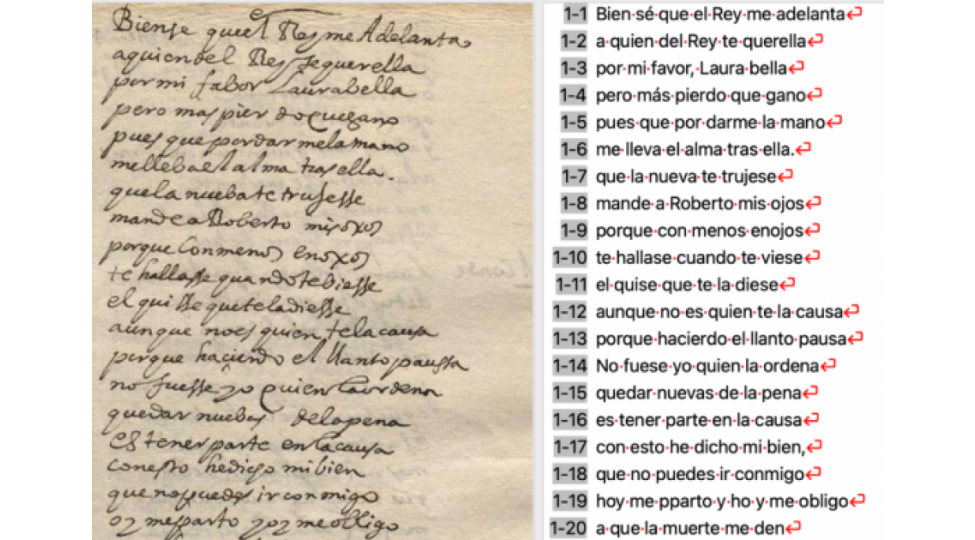 Biense que el Rey me Adelanta
aquien del Rey sequerella
por mi fabor Laurabella
pero mas pierdo que gano
pues que pordar mela mano
melleba el alma tras ella.
quela nueba te trusesse
mande a Roberto mis oxos
porque Conmenos Enoxos
te hallasse quando te biesse
el quisse que teladiesse
aunque no es quien te la causa
porque haciendo el llanto paussa
no fuesse yo quien la ordena
quedar nuebas dela pena
es tener parte en la causa
conesto he dicho mi bien
que no puedes ir conmigo
oy me parto y oy me obligo
1-1 Bien sé que el Rey me adelanta
1-2 a quien del Rey te querella
1-3 por mi favor, Laura bella
1-4 pero más pierdo que gano
1-5 pues que por darme la mano
1-6 me lleva el alma tras ella.
1-7 que la nueva te trujese
1-8 mande a Roberto mis ojos
1-9 porque con menos enojos
1-10 te hallase cuando te viese
1-11 el quise que te la diese
1-12 aunque no es quien te la causa
1-13 porque hacierdo el llanto pausa
1-14 No fuese yo quien la ordena
1-15 quedar nuevas de la pena
1-16 es tener parte en la causa
1-17 con esto he dicho mi bien,
1-18 que no puedes ir conmigo
1-19 hoy me pparto y ho y me obligo
1-20 a que la muerte me den